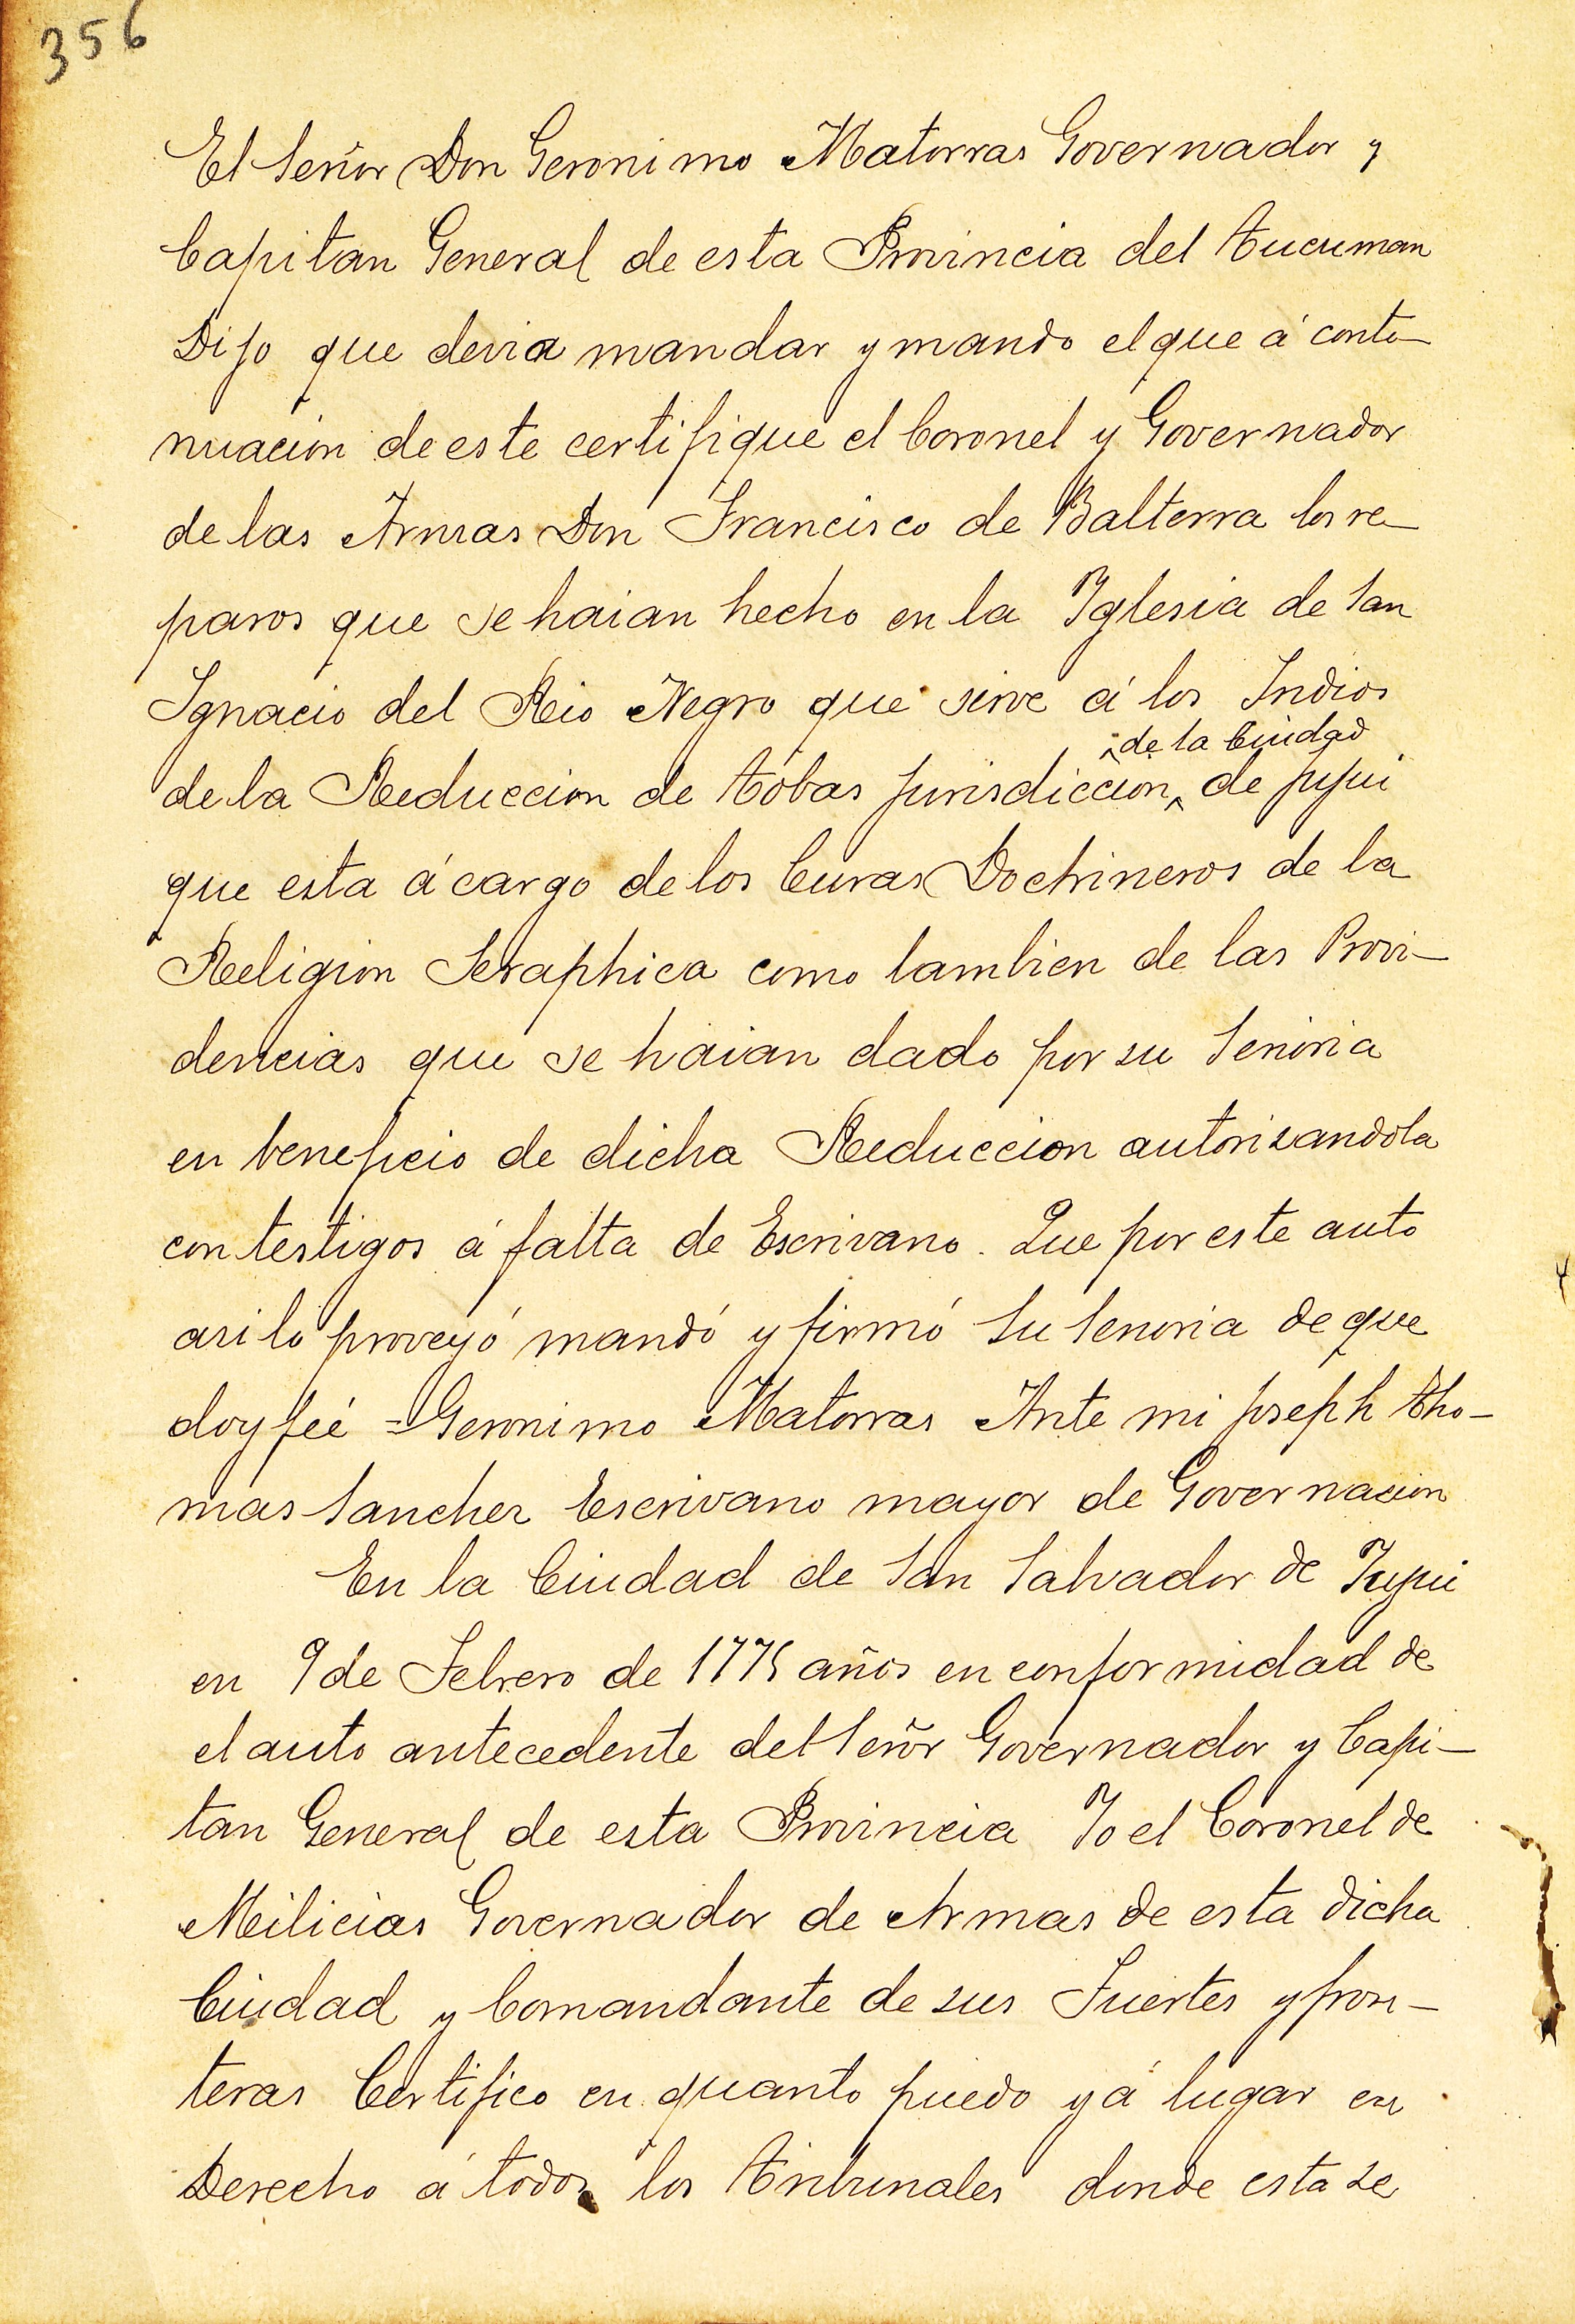 356
El Señor Don Geronimo Matorras Governador y
Capitan General de esta Provincia del Tucuman
Dijo que devia mandar y mando el que á conti–
nuacion de este certifique el Coronel y Governador
de las Armas Don Francisco de Balterra los re–
paros que se haian hecho en la Yglesia de San
Ignacio del Rio Negro que sirve á los Indios
de la Ciudad
de la Reduccion de Tobas jurisdiccion de jujui
que esta á cargo de los Curas Doctrineros de la
Religion Seraphica como tambien de las Provi–
dencias que se haian dado por su Senoria
en beneficio de dicha Reduccion autorizandola
con testigos á falta de Escrivano. Que por este auto
asi lo proveyó mandó y firmó Su Senoria de que
doy feé = Geronimo Matorras Ante mi joseph Tho–
mas Sanchez Escrivano mayor de Governacion
En la Ciudad de San Salvador de Jujui
en 9 de Febrero de 1775 años en conformidad de
el auto antecedente del Señor Governador y Capi–
tan General de esta Provincia Yo el Coronel de
Milicias Governador de Armas de esta dicha
Ciudad y Comandante de sus Fuertes y fron–
teras Certifico en quanto puedo y á lugar en
Derecho á todos los Tribunales donde esta se